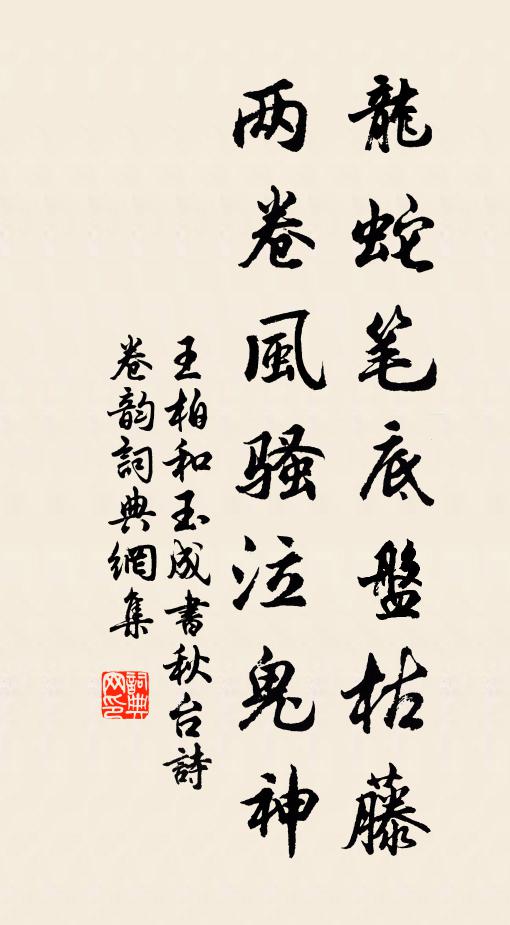 龍蛇笔底盤枯藤
两卷風騷泣鬼神
王柏和玉成書秋台詩
卷韵詞典網集
詞典网印